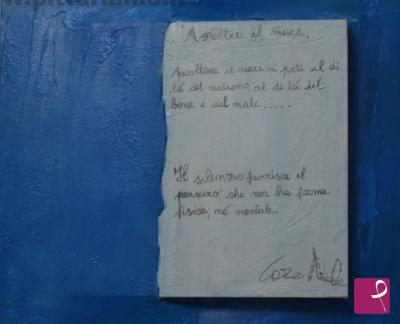 Ascoltare il mare.
Ascoltare il mare mi porta al di
là del realismo, al di là del
bene e del male.....
Il silenzio favorisce il
pensiero che non ha forma
fisica, né mentale.